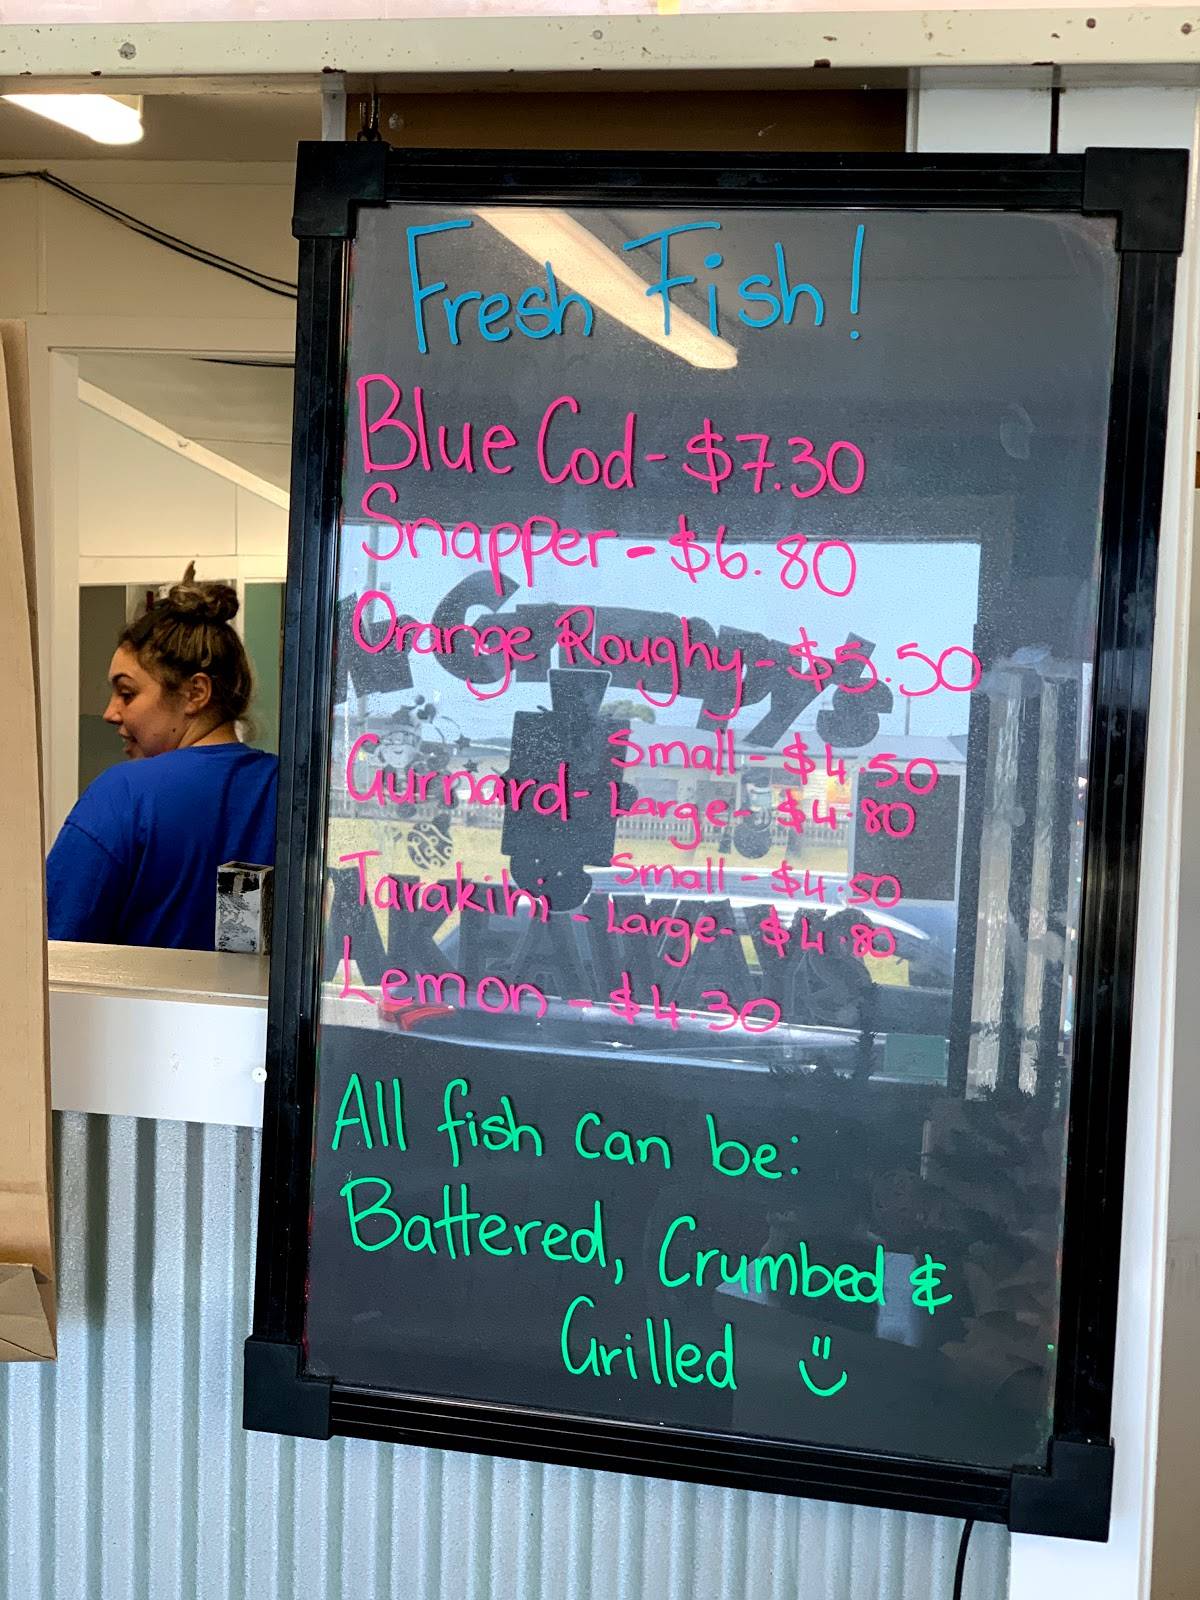 Fresh Fish!
Blue Cod - $7.30
Snapper - $6.80
Orange Roughy - $5.50
Gurnard - Small - $4.50
Large - $4.80
Tarakihi - Small - $4.50
Large - $4.80
Lemon - $4.30
All fish can be:
Battered, Crumbed &
Grilled